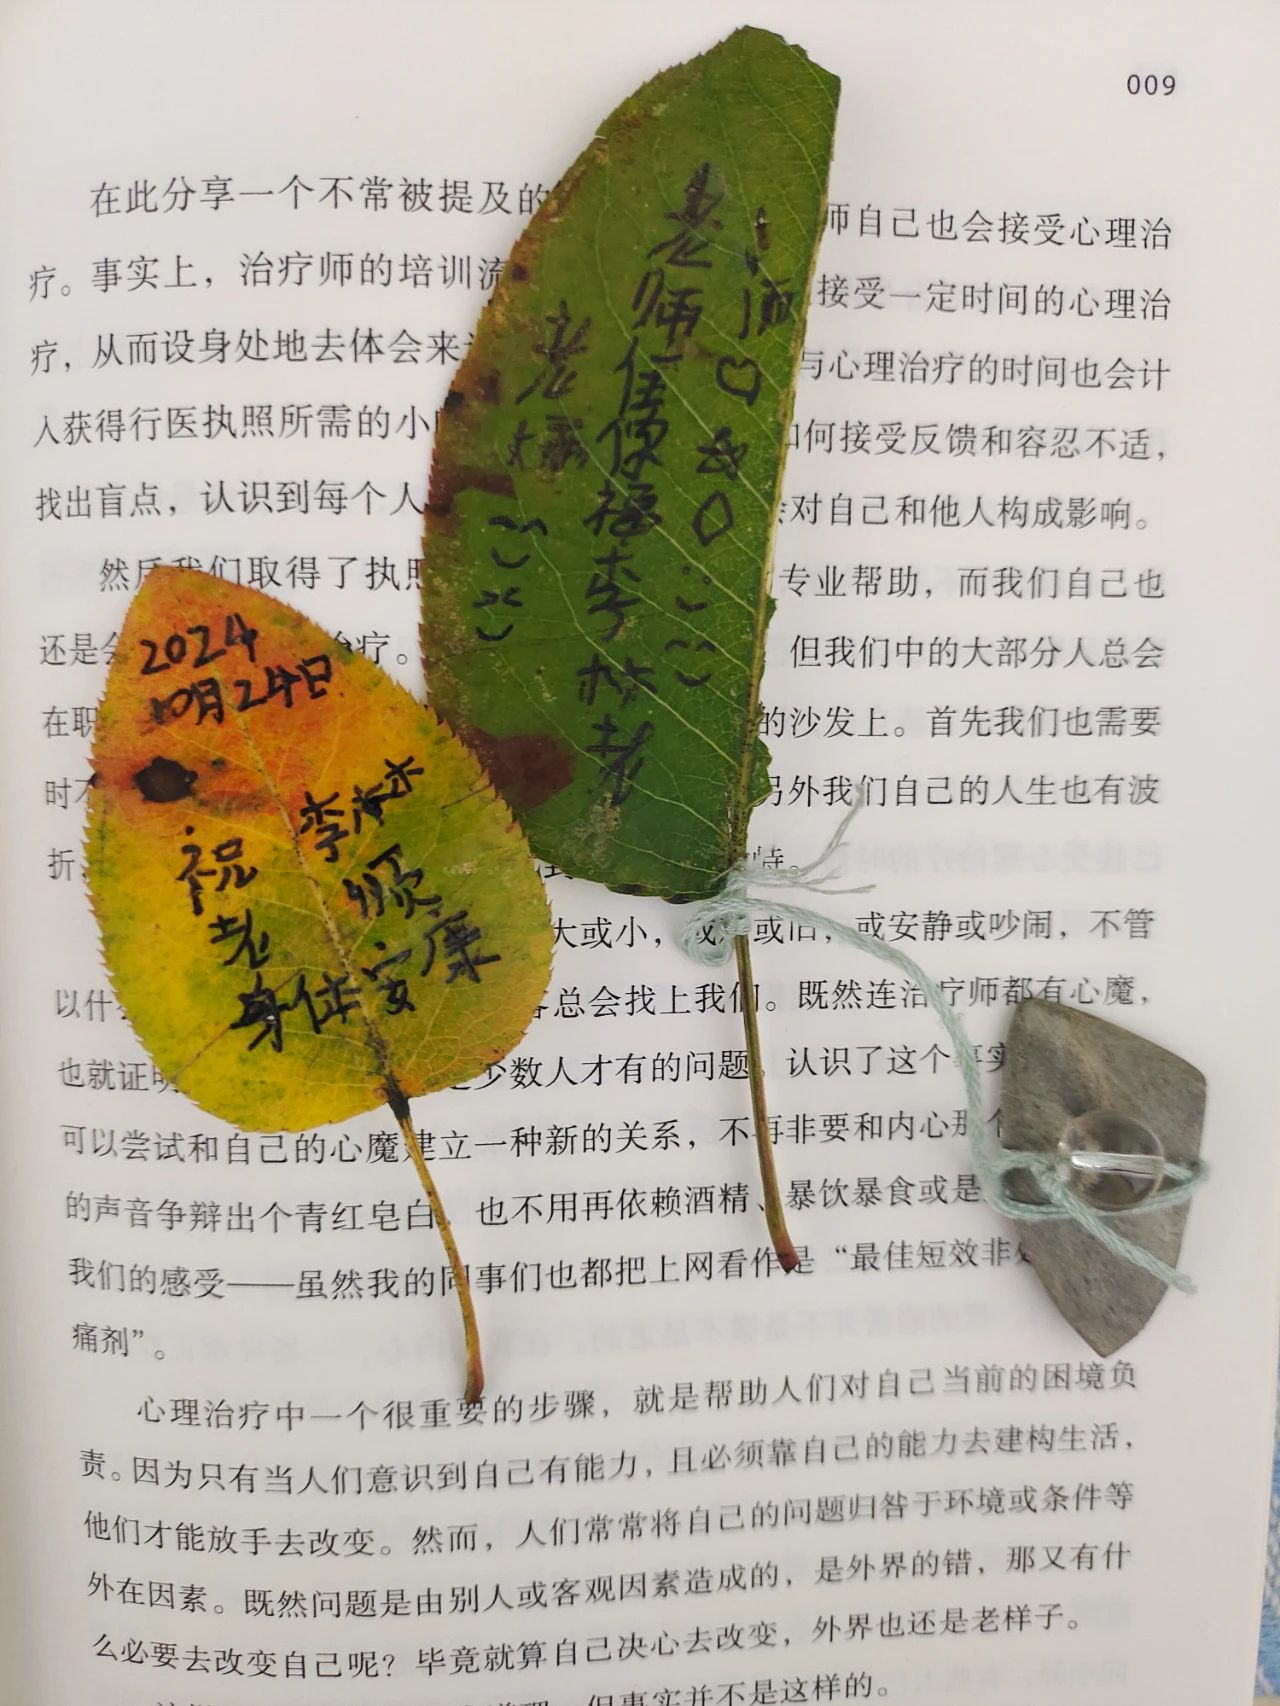 009
在此分享一个不常被提及的
师自己也会接受心理治
疗。事实上，治疗师的培训流
接受一定时间的心理治
疗，从而设身处地去体会来
与心理治疗的时间也会计
入获得行医执照所需的小
如何接受反馈和容忍不适，
找出盲点，认识到每个人
会对自己和他人构成影响。
然后我们取得了执照
专业帮助，而我们自己也
还是会
治疗。
但我们中的大部分人总会
在职
的沙发上。首先我们也需要
时不
另外我们自己的人生也有波
折
持。
大或小，或
或旧，或安静或吵闹，不管
以什么
总会找上我们。既然连治疗师都有心魔，
也就证明
少数人才有的问题。认识了这个事实
可以尝试和自己的心魔建立一种新的关系，不再非要和内心那个
的声音争辩出个青红皂白，也不用再依赖酒精、暴饮暴食或是
我们的感受——虽然我的同事们也都把上网看作是“最佳短效非处
痛剂”。
心理治疗中一个很重要的步骤，就是帮助人们对自己当前的困境负
责。因为只有当人们意识到自己有能力，且必须靠自己的能力去建构生活，
他们才能放手去改变。然而，人们常常将自己的问题归咎于环境或条件等
外在因素。既然问题是由别人或客观因素造成的，是外界的错，那又有什
么必要去改变自己呢？毕竟就算自己决心去改变，外界也还是老样子。
但事实并不是这样的。
2024
10月24日
祝
老
身体安康
老
师